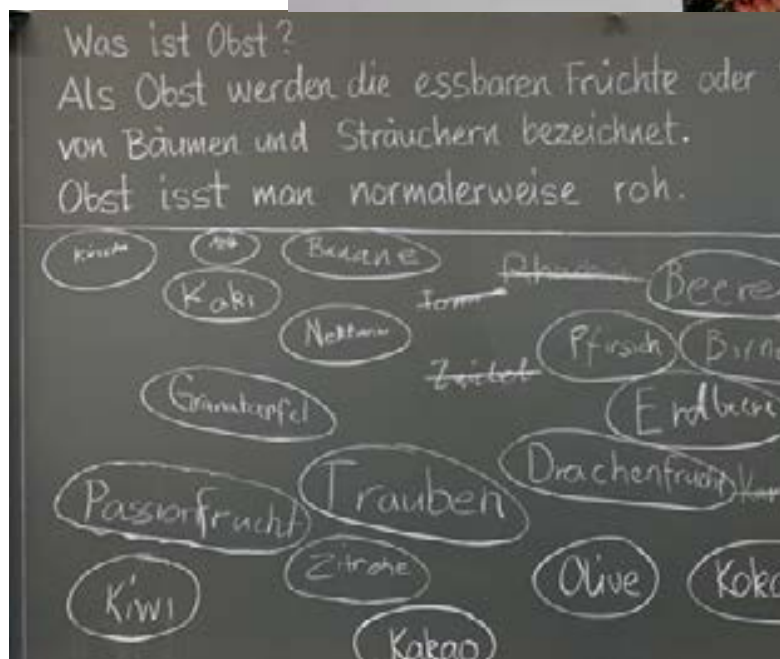 Was ist Obst?
Als Obst werden die essbaren Früchte oder
von Bäumen und Sträuchern bezeichnet.
Obst isst man normalerweise roh.
Kirsche Banane Beere
Kaki
Nektarine Pfirsich Birne
Zwiebel
Granatapfel Erdbeere
Drachenfrucht
Passionfrucht Trauben
Zitrone Olive Koko
Kiwi
Kakao